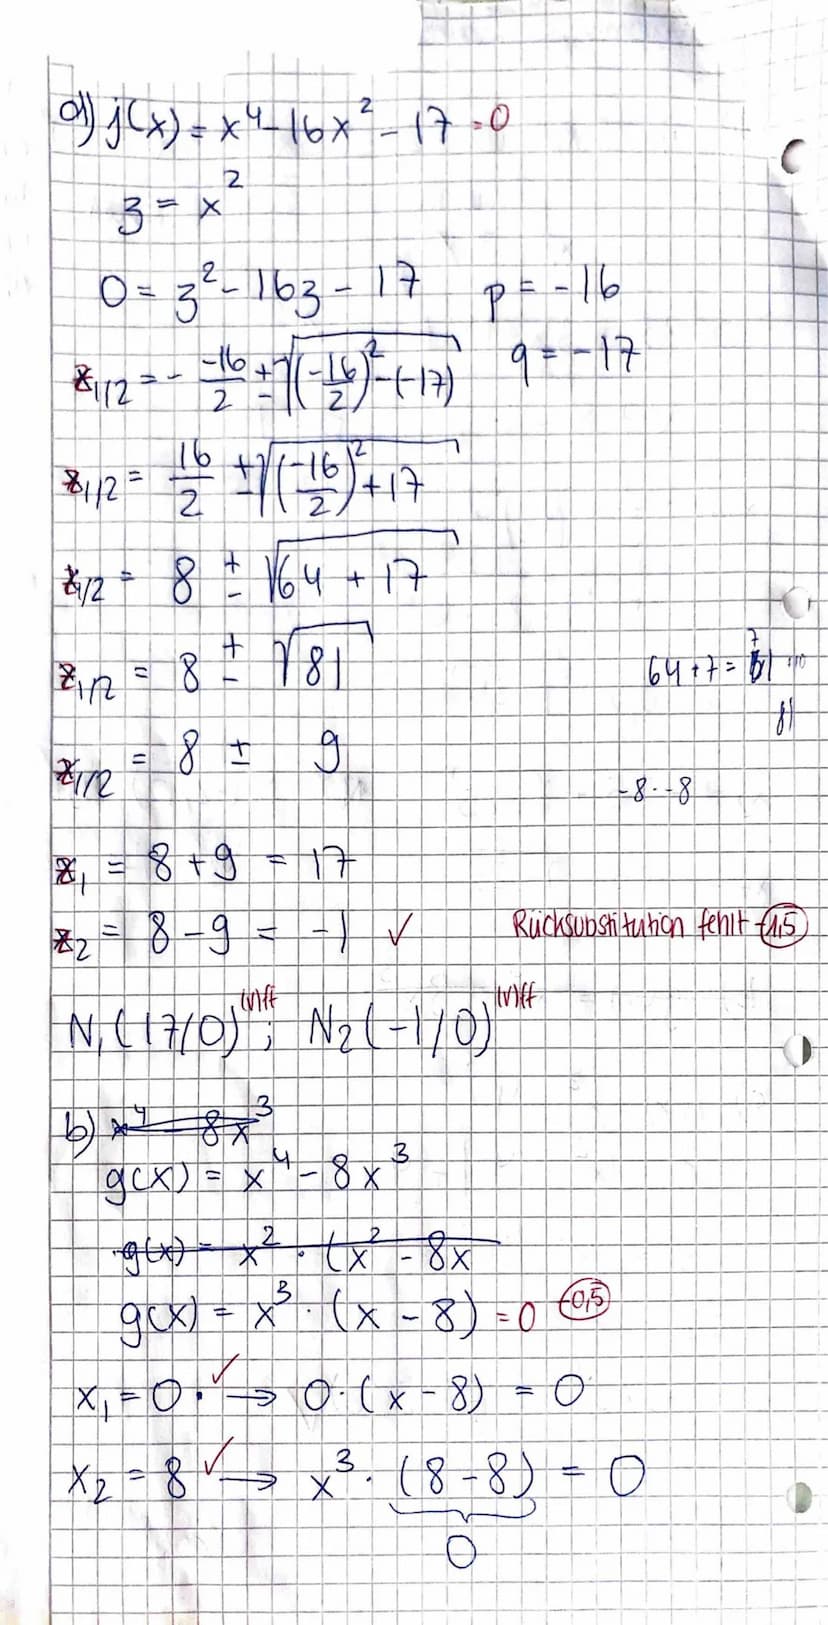 a) j(x) = x⁴ - 16x² - 17 = 0
z = x²
0 = z² - 16z - 17 p = -16
z₁/₂ = - -16/2 ± √((-16/2)² - (-17)) q = -17
z₁/₂ = 16/2 ± √((-16/2)² + 17)
z₁/₂ = 8 ± √(64 + 17)
z₁/₂ = 8 ± √81 64 + 7 = 71
81
z₁/₂ = 8 ± 9
-8 · -8
z₁ = 8 + 9 = 17
z₂ = 8 - 9 = -1 ✓ Rücksubstitution fehlt -1,5
N₁(17/0) (v)ff ; N₂(-1/0) (v)ff
b) x⁴ - 8x³
g(x) = x⁴ - 8x³
g(x) = x² · (x² - 8x
g(x) = x³ · (x - 8) = 0 -0,5
x₁ = 0 · ✓ → 0 · (x - 8) = 0
x₂ = 8 ✓ → x³ · (8 - 8) = 0
0